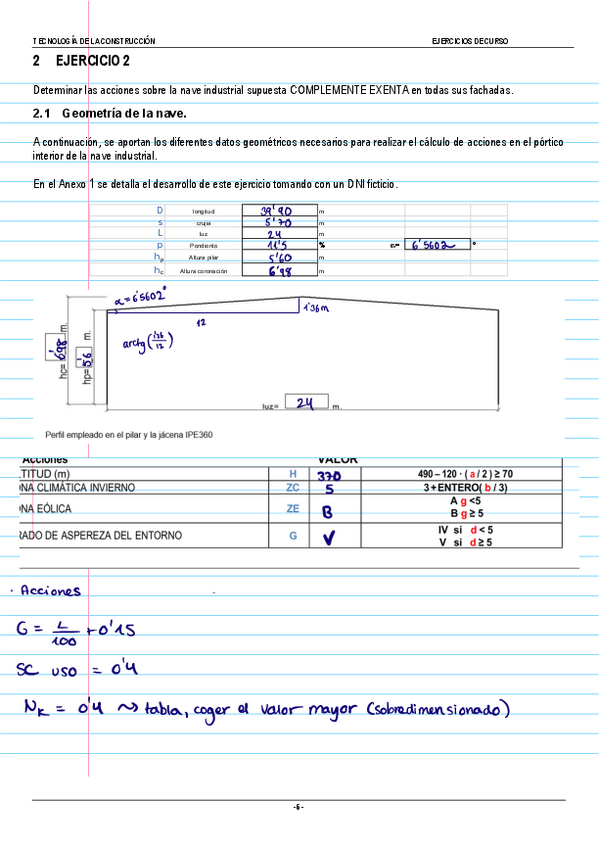 TECNOLOGÍA DE LA CONSTRUCCIÓN EJERCICIOS DE CURSO
2 EJERCICIO 2
Determinar las acciones sobre la nave industrial supuesta COMPLEMENTE EXENTA en todas sus fachadas.
2.1 Geometría de la nave.
A continuación, se aportan los diferentes datos geométricos necesarios para realizar el cálculo de acciones en el pórtico
interior de la nave industrial.
En el Anexo 1 se detalla el desarrollo de este ejercicio tomando con un DNI ficticio.
D longitud 39'90 m
s crujia 5'70 m
L luz 24 m
p Pendiente 11'5 % α= 6'5602 º
hp Altura pilar 5'60 m
hc Altura coronación 6'98 m
α=6'5602º
1'36m
12
arctg(1'36/12)
hc= 6'98 m.
hp= 5'6 m.
luz= 24 m.
Perfil empleado en el pilar y la jácena IPE360
Acciones VALOR
TITUD (m) H 370 490 – 120 · ( a / 2 ) ≥ 70
ONA CLIMÁTICA INVIERNO ZC 5 3 + ENTERO( b / 3)
ONA EÓLICA ZE B A g <5
B g ≥ 5
RADO DE ASPEREZA DEL ENTORNO G V IV si d < 5
V si d ≥ 5
· Acciones
G = L/100 + 0'15
SC uso = 0'4
Nk = 0'4 ~> tabla, coger el valor mayor (sobredimensionado)
-6-